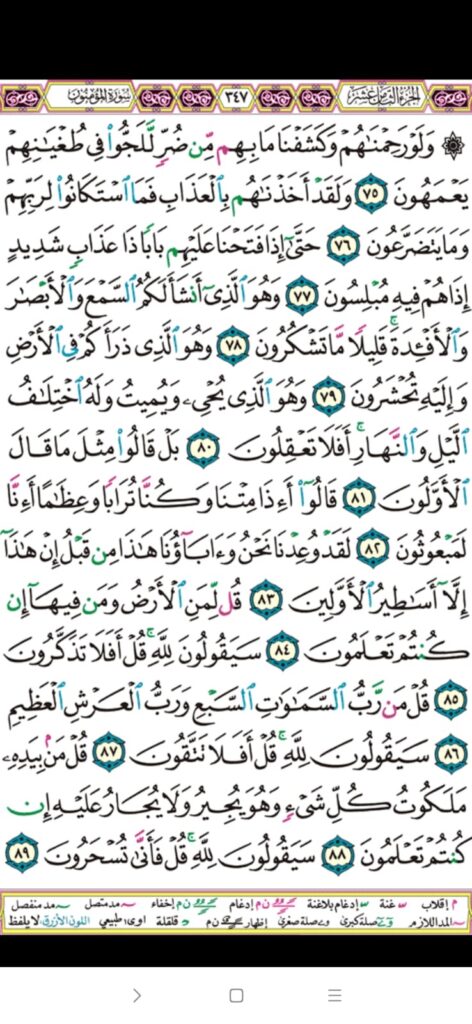 الجزء الثامن عشر ٣٤٧ سورة المؤمنون
۞ وَلَوْ رَحِمْنَٰهُمْ وَكَشَفْنَا مَا بِهِم مِّن ضُرٍّ لَّلَجُّوا۟ فِى طُغْيَٰنِهِمْ
يَعْمَهُونَ ٧٥ وَلَقَدْ أَخَذْنَٰهُم بِٱلْعَذَابِ فَمَا ٱسْتَكَانُوا۟ لِرَبِّهِمْ
وَمَا يَتَضَرَّعُونَ ٧٦ حَتَّىٰٓ إِذَا فَتَحْنَا عَلَيْهِم بَابًا ذَا عَذَابٍ شَدِيدٍ
إِذَا هُمْ فِيهِ مُبْلِسُونَ ٧٧ وَهُوَ ٱلَّذِىٓ أَنشَأَ لَكُمُ ٱلسَّمْعَ وَٱلْأَبْصَٰرَ
وَٱلْأَفْـِٔدَةَ ۚ قَلِيلًا مَّا تَشْكُرُونَ ٧٨ وَهُوَ ٱلَّذِى ذَرَأَكُمْ فِى ٱلْأَرْضِ
وَإِلَيْهِ تُحْشَرُونَ ٧٩ وَهُوَ ٱلَّذِى يُحْىِۦ وَيُمِيتُ وَلَهُ ٱخْتِلَٰفُ
ٱلَّيْلِ وَٱلنَّهَارِ ۚ أَفَلَا تَعْقِلُونَ ٨٠ بَلْ قَالُوا۟ مِثْلَ مَا قَالَ
ٱلْأَوَّلُونَ ٨١ قَالُوٓا۟ أَءِذَا مِتْنَا وَكُنَّا تُرَابًا وَعِظَٰمًا أَءِنَّا
لَمَبْعُوثُونَ ٨٢ لَقَدْ وُعِدْنَا نَحْنُ وَءَابَآؤُنَا هَٰذَا مِن قَبْلُ إِنْ هَٰذَآ
إِلَّآ أَسَٰطِيرُ ٱلْأَوَّلِينَ ٨٣ قُل لِّمَنِ ٱلْأَرْضُ وَمَن فِيهَآ إِن
كُنتُمْ تَعْلَمُونَ ٨٤ سَيَقُولُونَ لِلَّهِ ۚ قُلْ أَفَلَا تَذَكَّرُونَ
٨٥ قُلْ مَن رَّبُّ ٱلسَّمَٰوَٰتِ ٱلسَّبْعِ وَرَبُّ ٱلْعَرْشِ ٱلْعَظِيمِ
٨٦ سَيَقُولُونَ لِلَّهِ ۚ قُلْ أَفَلَا تَتَّقُونَ ٨٧ قُلْ مَنۢ بِيَدِهِۦ
مَلَكُوتُ كُلِّ شَىْءٍ وَهُوَ يُجِيرُ وَلَا يُجَارُ عَلَيْهِ إِن
كُنتُمْ تَعْلَمُونَ ٨٨ سَيَقُولُونَ لِلَّهِ ۚ قُلْ فَأَنَّىٰ تُسْحَرُونَ ٨٩
م إقلاب غنة إدغام بلاغنة ن م إدغام ن م إخفاء مد متصل مد منفصل
المد اللازم صلة كبرى وصلة صغرى إظهار ن م قلقلة اوى طبيعي اللون الأزرق لا يلفظ